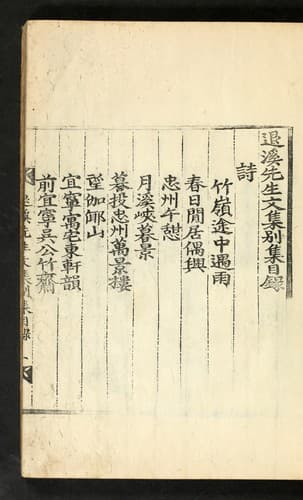 退溪先生文集別集目録
詩
竹嶺途中遇雨
春日閒居偶興
忠州午憇
月溪峽暮景
暮投忠州萬景樓
望伽倻山
宜寧寓宅東軒韻
前宜寧吳公竹齋
退溪先生文集別集目録 一